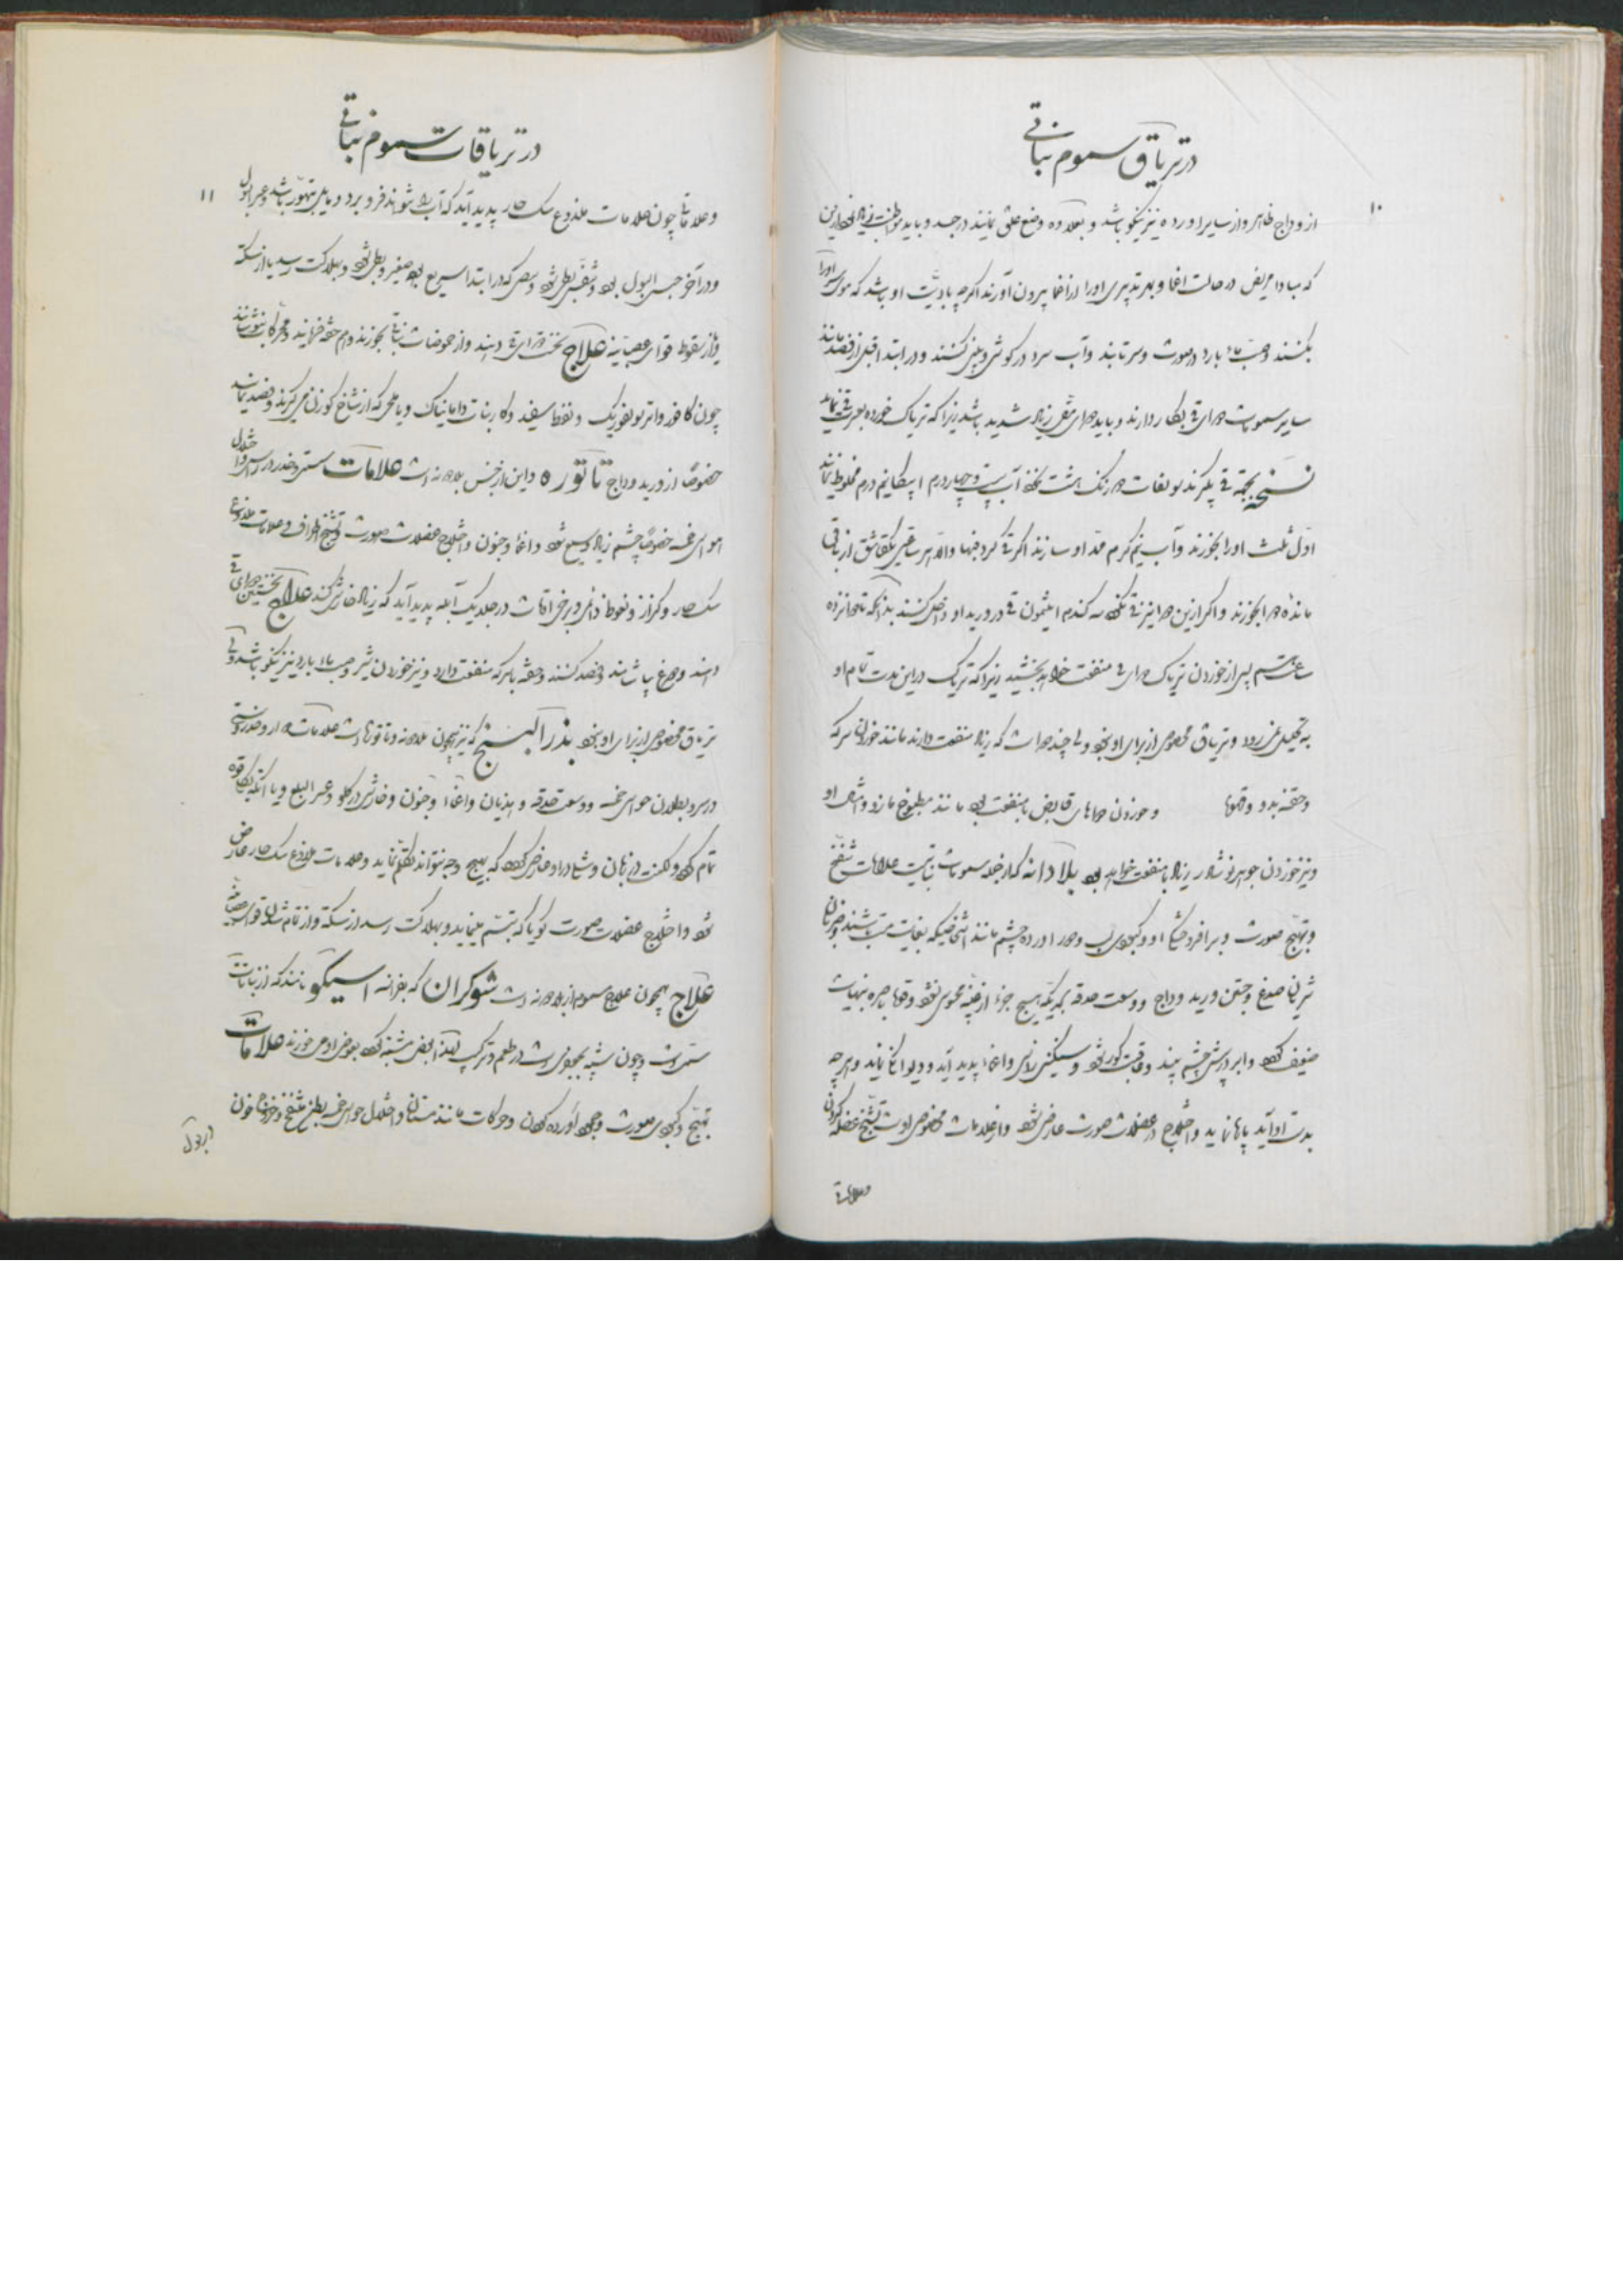 در تریاق سموم نباتی
۱۰
از وداج ظاهر و از سایر اورده نیز نیکو باشد و بعلاوه وضع علق نمایند در جسد و باید مواظبت زیاد
که مبادا مریض در حالت اغما و بهر تدبیری او را از اغما بیرون آورند اگرچه باذیت او باشد که موی او را
بکنند و صب ماء بارد در صورت و سر نمایند و آب سرد در گوش و بینی کنند و در ابتدا قبل از فصد مانند
سایر سمومات دوای قی بکار دارند و باید دوای مقی زیاد شدید باشد زیرا که تریاک خورده بعسرت قی نماید
نسخه بجهة قی بگیرند سولفات دو زنک هشت نخود آب بیست و چهار درم اپیکا نیم درم مخلوط نمایند
اول ثلث او را بخورند و آب نیم گرم مدد او سازند اگر قی کرد فبها والا هر ساعتی یک قاشق از باقی
مانده را بخورند و اگر ازین دوا نیز قی نکرد سه گندم ایتمون قی در ورید او داخل کنند بدانکه تا پانزده
ساعت هم پس از خوردن تریاک دوای قی منفعت خواهد بخشید زیرا که تریاک در این مدت تمام او
به تحلیل نمی رود و تریاق مخصوص از برای او نبود ولی چند دوا است که زیاد منفعت دارند مانند خوردن سرکه
و حقنه بدو و قهوه و خوردن دواهای قابض با منفعت بود مانند مطبوخ مازو و امثال او
و نیز خوردن جوهر نوشادر زیاد با منفعت خواهد بود بلادانه که از جمله سمومات نباتیست علامات
و تهیج صورت و برافروختگی او و کبودی لب و دور اورده چشم مانند اشخاصیکه بغایت مست باشند و ضربان
شریان صدغ و جستن ورید وداج و وسعت حدقه بحدیکه هیچ جزء از عنبیه محسوس نشود و قوه باصره بنهایت
ضعیف گردد و ابر در پیش چشم بیند و وقتی کور شود و سنگینی راس و اغما پدید آید و دیوانگی نماید و هرچه
بدست او آید پاره نماید و اختلاج در عضلات صورت عارض شود و از علامات مخصوص اوست تشنج عضله گردن
و علاماتی
در تریاقات سموم نباتی
۱۱
و علاماتی چون علامات ملذوع سگ هار پدید آید که آب را نتواند فرو برد و مایل بتهور باشد و عسر البول
و در آخر حبس البول بود و تنفس بطی شود و نبض که در ابتدا سریع بود صغیر و بطی شود و بهلاکت رسد یا از سکته
و یا از سقوط قوای عصبانیه علاج نخست دوای قی دهند و از حموضات نباتی بخورند و هم حقنه فرمایند و محرکات بنوشانند
چون کافور و اتر سولفوریک و نفط سفید و کاربنات دامانیاک و یا ملحی که از شاخ گوزن می گیرند و فصد نمایند
خصوصا از ورید وداج تاتوره و این از جنس بلادانه است علامات سستی و خدر در راس و اختلال
حواس خمسه خصوصا چشم زیاد وسیع شود و اغما و جنون و اختلاج عضلات صورت و تشنج اطراف و علامات ملذوع
سگ هار و کزاز و نعوظ دائمی و برخی اوقات در جلد یک آبله پدید آید که زیاد خارش کند علاج نخستین دوای قی
دهند و مرغ بپاشانند و فصد کنند و حقنه با سرکه منفعت دارد و نیز خوردن شیر و صب ماء بارد نیز نیکو باشد ولی
تریاق مخصوص از برای او نبود بذر البنج که نیز همچون بلادانه و تاتوره است علامات دوار و خدر و سستی
در سر و بطلان حواس خمسه و وسعت حدقه و هذیان و اغما و جنون و خارش در گلو و عسر البلع و یا آنکه بکلی قوه
تمام گردد و لکنت در زبان و شاید او عارض گردد که بهیچ وجه نتواند تکلم نماید و علامات ملذوع سگ هار عارض
شود و اختلاج عضلات صورت گویا که تبسم مینماید و بهلاکت رسد از سکته و از تمام شدن قوای عصبانیه
علاج همچون علاج سموم از بلادانه است شوکران که بفرانسه اسیگو نامند که از نباتات
سمی است و چون شبیه بجعفری است در طعم و ترکیب لهذا بعضی مشتبه گردد بعوض او می خورند علامات
تهیج و کبودی صورت و جمود اورده گردن و حرکات مانند مستان و اختلال حواس خمسه بطن منتفخ و خروج خون
در بول